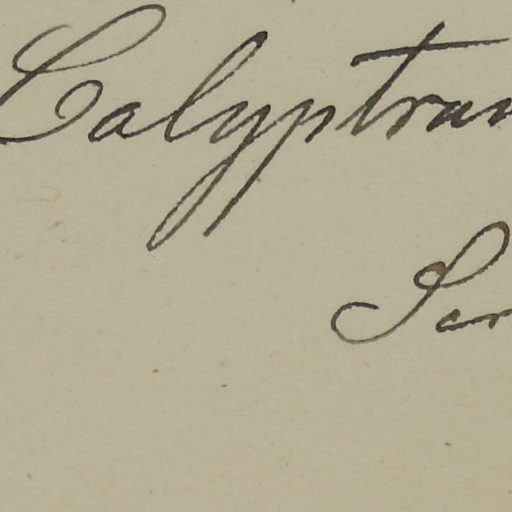 Calyptran
Ser